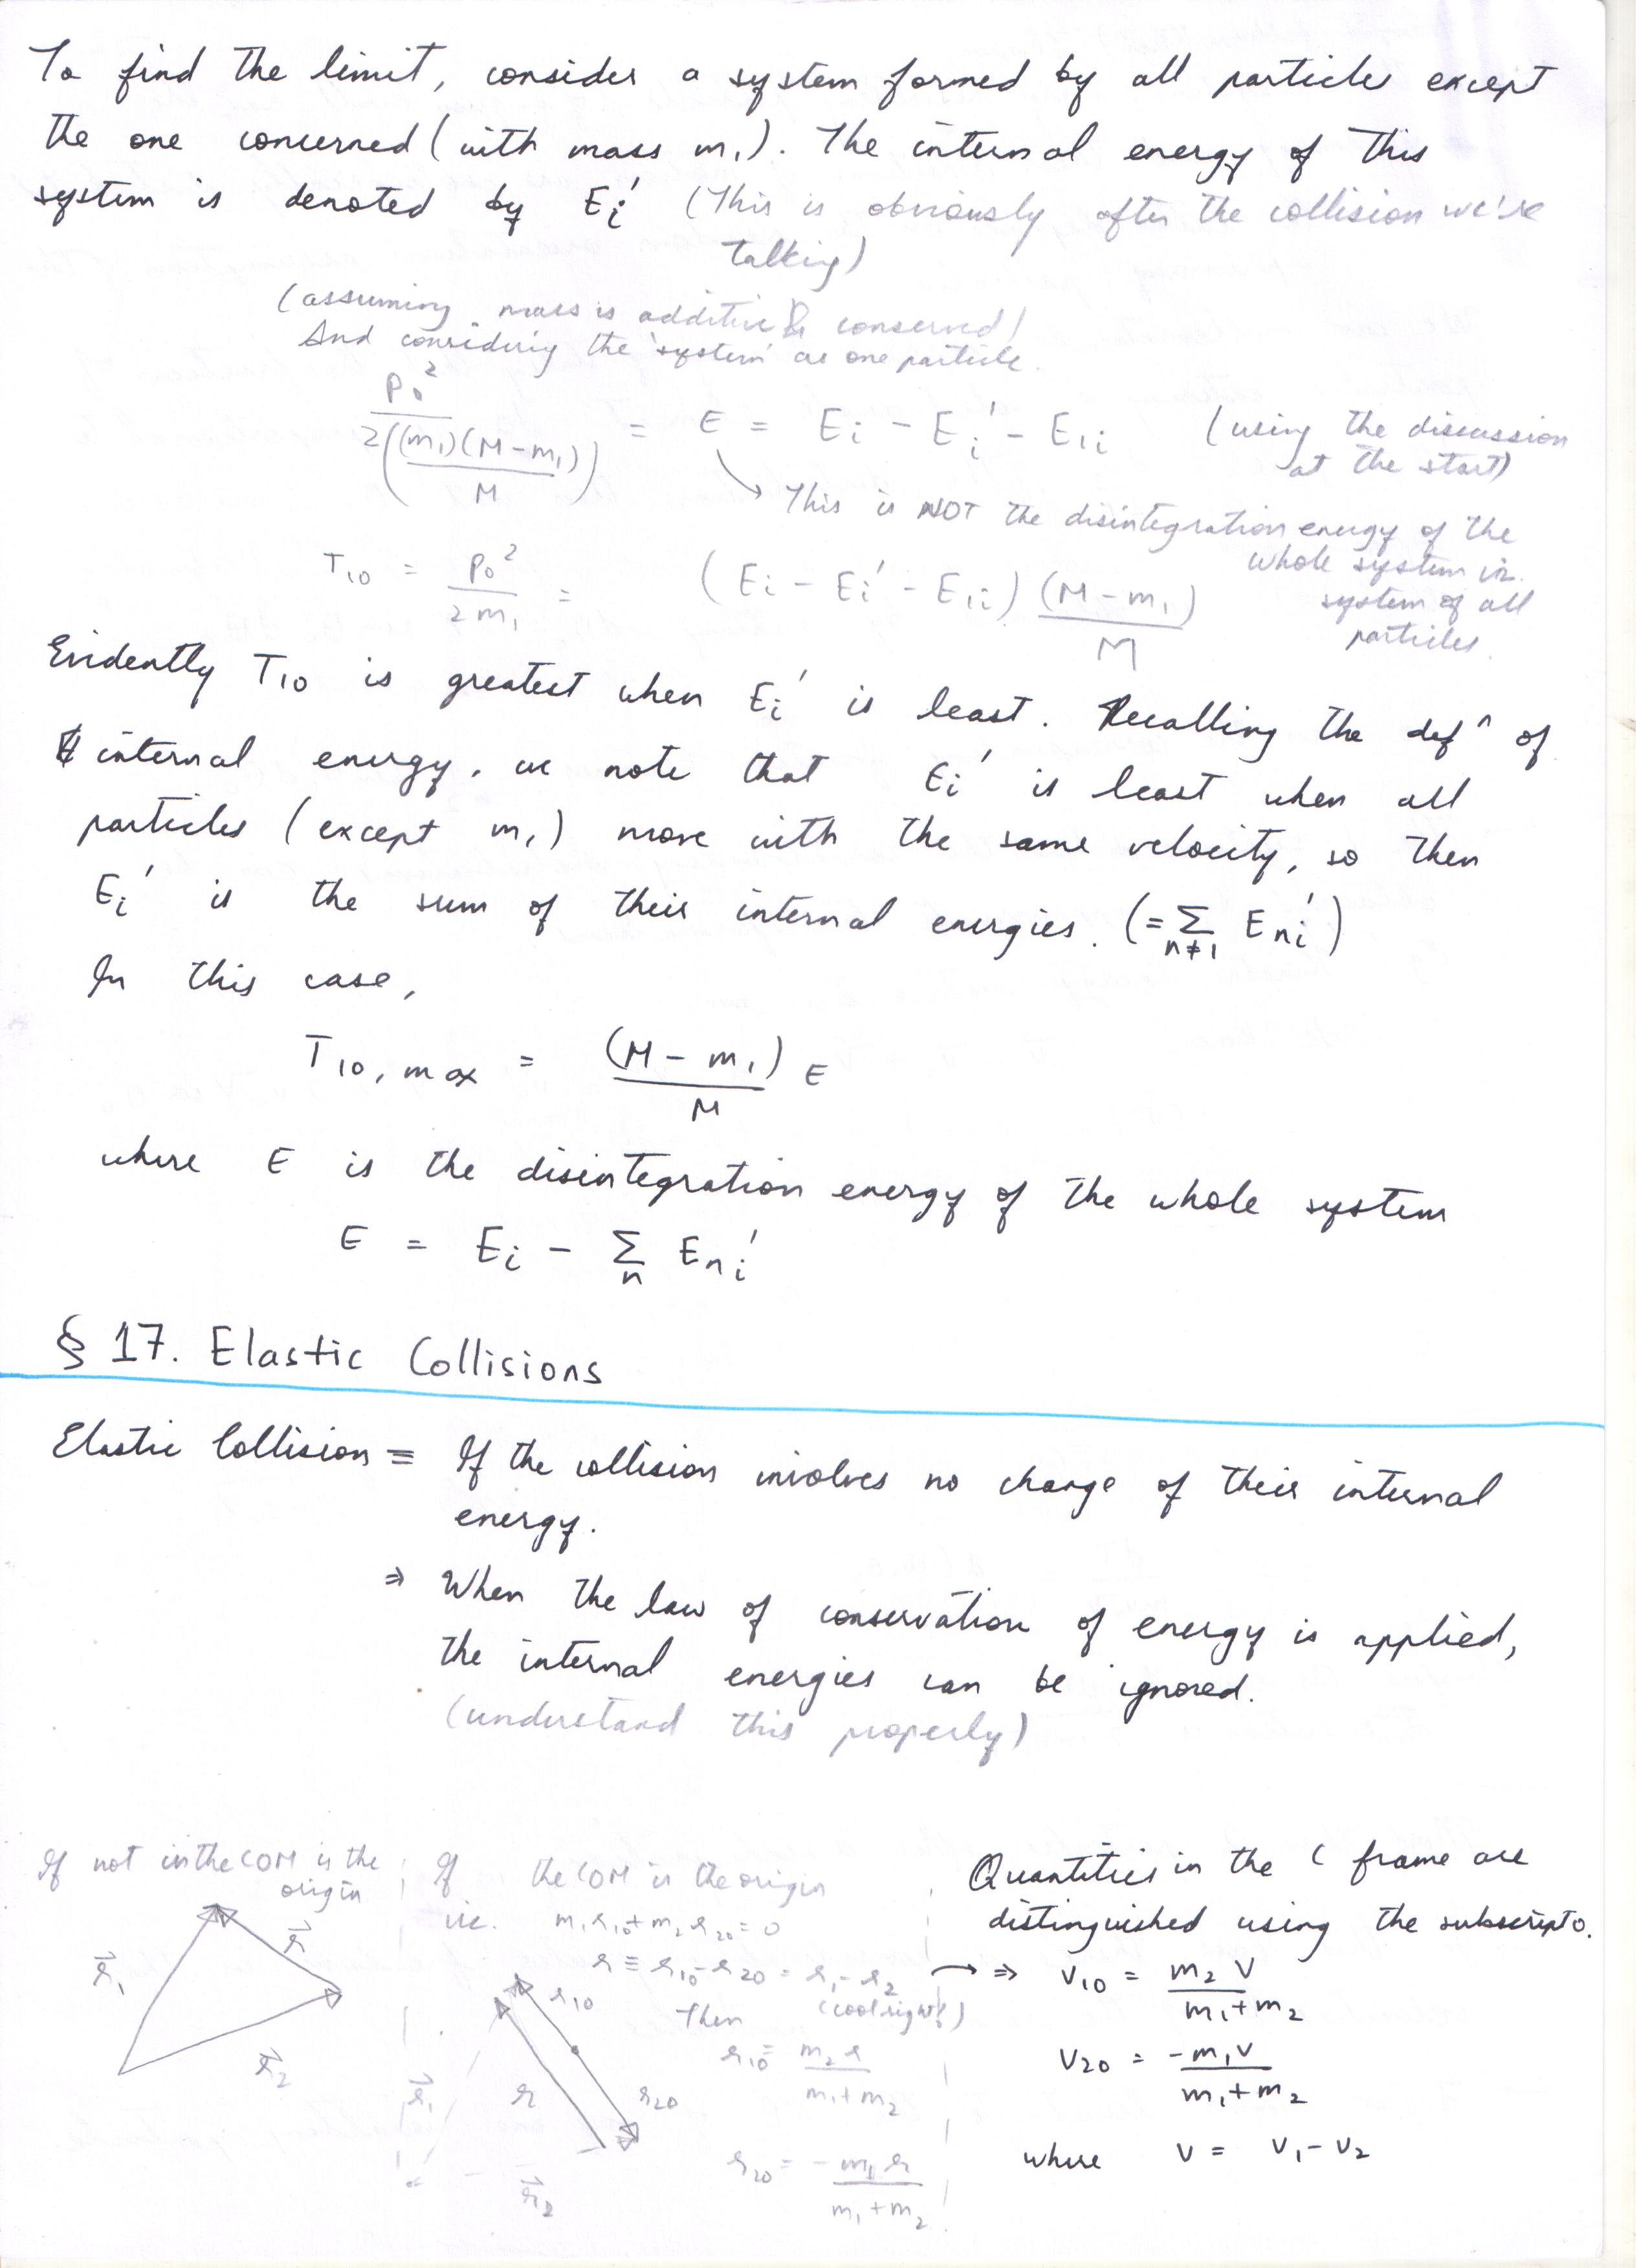 To find the limit, consider a system formed by all particles except
the one concerned (with mass m₁). The internal energy of this
system is denoted by Eᵢ' (This is obviously after the collision we're
talking)
(assuming mass is additive & conserved)
And considering the 'system' as one particle.
p₀² / 2((m₁)(M-m₁)/M) = E = Eᵢ - Eᵢ' - E₁ᵢ (using the discussion
at the start)
↘ This is NOT the disintegration energy of the
whole system in
system of all
particles.
T₁₀ = p₀²/2m₁ = (Eᵢ - Eᵢ' - E₁ᵢ) (M-m₁)/M
Evidently T₁₀ is greatest when Eᵢ' is least. Recalling the defⁿ of
internal energy, we note that Eᵢ' is least when all
particles (except m₁) move with the same velocity, so then
Eᵢ' is the sum of their internal energies. (= Σ_{n≠1} Eₙᵢ')
In this case,
T₁₀,max = (M-m₁)/M E
where E is the disintegration energy of the whole system
E = Eᵢ - Σₙ Eₙᵢ'
§ 17. Elastic Collisions
Elastic Collision ≡ If the collision involves no change of their internal
energy.
⇒ When the law of conservation of energy is applied,
the internal energies can be ignored.
(understand this properly)
If not in the COM is the
origin
r⃗₁
r⃗
r⃗₂
If the COM is the origin
ie. m₁r₁₀ + m₂r₂₀ = 0
r ≡ r₁₀ - r₂₀ = r₁ - r₂
Then (cool right?)
r₁₀ = m₂r/(m₁+m₂)
r₂₀ = -m₁r/(m₁+m₂)
r₁₀
r⃗₁
r
r₂₀
r⃗₂
Quantities in the C frame are
distinguished using the subscript 0.
→ ⇒ v₁₀ = m₂v/(m₁+m₂)
v₂₀ = -m₁v/(m₁+m₂)
where v = v₁ - v₂